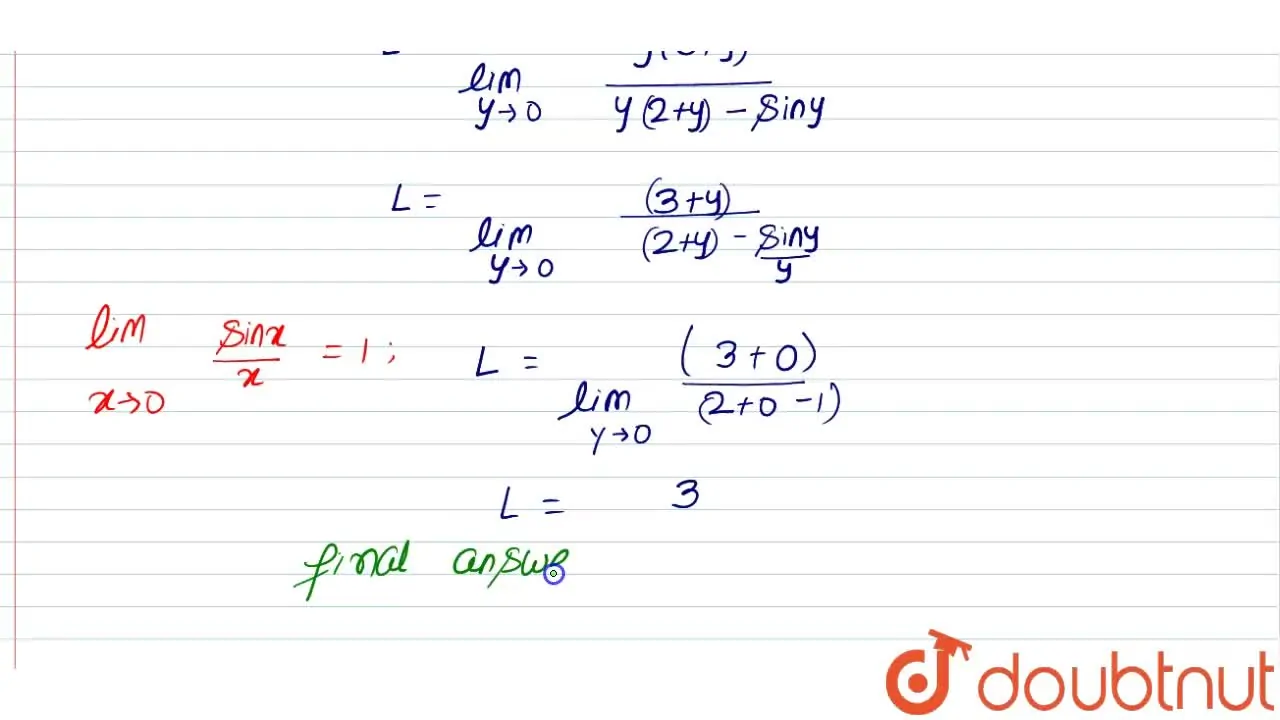 lim y→0 / y(2+y) - siny
L = lim y→0 (3+y) / (2+y) - siny/y
lim x→0 sinx/x = 1 ;
L = lim y→0 (3+0) / (2+0-1)
L = 3
final answe
doubtnut